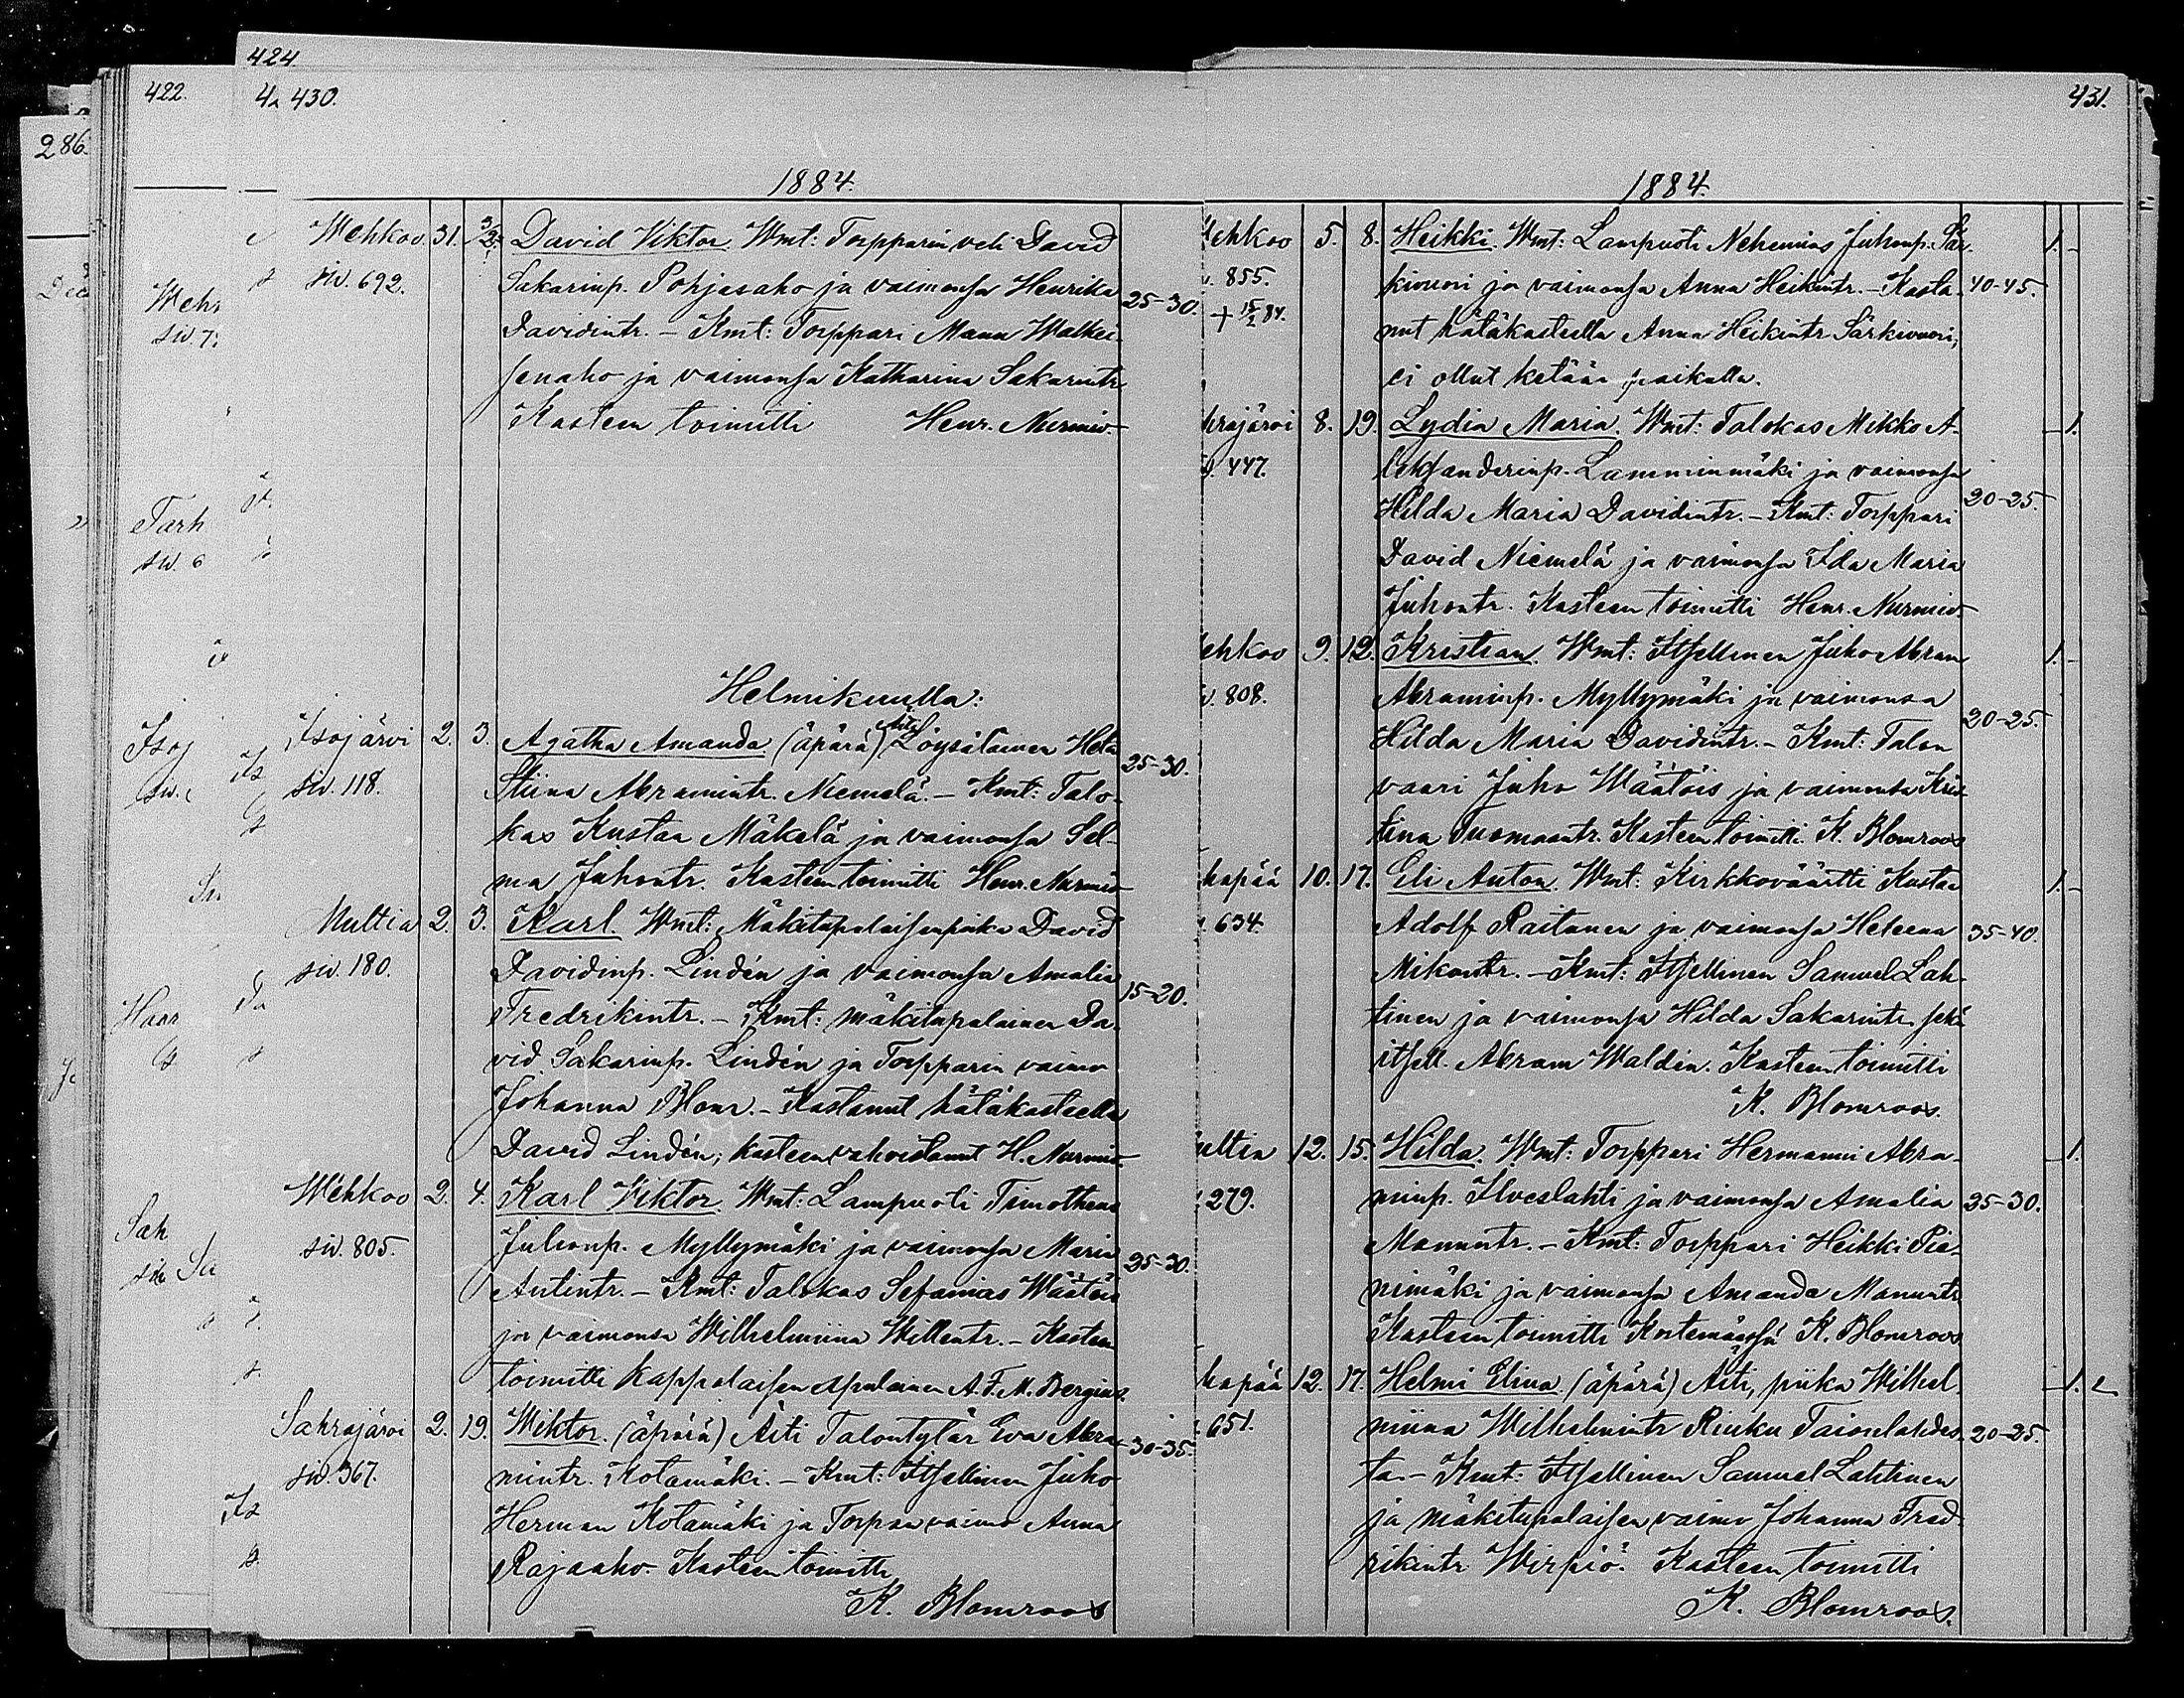 424.
422.
430.
431.
286.
1884.
Wehkoo 31. 3/2. David Viktor. Wmt: Torpparin veli David
siv. 692. Sakarinp. Pohjasaho ja vaimonsa Henrika 25-30.
Davidintr. – Kmt: Torppari Manu Walkei-
senaho ja vaimonsa Katharina Sakarintr.
Kasteen toimitti Henr. Nurmio.
Helmikuulla:
Isojärvi 2. 3. Agatha Amanda (äpärä) äiti Löysäläinen Heta 25-30.
siv. 118. Stiina Abramintr. Niemelä. – Kmt: Talo-
kas Kustaa Mäkelä ja vaimonsa Sel-
ma Juhontr. Kasteen toimitti Henr. Nurmio
Multia 2. 3. Karl. Wmt: Mäkitupalaisenpoika David
siv. 180. Davidinp. Lindén ja vaimonsa Amalia 15-20.
Fredrikintr. – Kmt: mäkitupalainen Da-
vid Sakarinp. Lindén ja Torpparin vaimo
Johanna Blomr. – Kastanut hätäkasteella
David Lindén; kasteen vahvistanut H. Nurmio.
Wehkoo 2. 4. Karl Viktor. Wmt: Lampuoti Timotheus
siv. 805. Juhonp. Myllymäki ja vaimonsa Maria 25-30.
Antintr. – Kmt: Talokas Sefanias Wäätäis
ja vaimonsa Wilhelmiina Willentr. – Kasteen
toimitti Kappalaisen apulainen A. F. M. Bergius.
Sahrajärvi 2. 19. Wiktor. (äpärä) Äiti Talontytär Eva Abra- 30-35.
siv. 367. mintr. Kotamäki. – Kmt: Itsellinen Juho
Herman Kotamäki ja Torpan vaimo Anna
Rajaaho. Kasteen toimitti
K. Blomroos
1884.
ehkoo 5. 8. Heikki. Wmt: Lampuoti Nehemias Juhonp. Sär- 1. –
855. kivuori ja vaimonsa Anna Heikintr. – Kasta- 40-45.
+ 15/2 84. nut hätäkasteella Anna Heikintr. Särkivuori,
ei ollut ketään paikalla.
hrajärvi 8. 19. Lydia Maria. Wmt: Talokas Mikko A- – 1.
447. leksanderinp. Lamminmäki ja vaimonsa
Hilda Maria Davidintr. – Kmt: Torppari 20-25.
David Niemelä ja vaimonsa Ida Maria
Juhontr. Kasteen toimitti Henr. Nurmio
ehkoo 9. 12. Kristian. Wmt: Itsellinen Juho Abram 1. –
808. Abraminp. Myllymäki ja vaimonsa
Hilda Maria Davidintr. – Kmt: Talon 20-25.
vaari Juho Wäätäis ja vaimonsa Kris-
tina Tuomaantr. Kasteen toimitti K. Blomroos
hapää 10. 17. Eli Anton. Wmt: Kirkkoväärtti Kustaa 1. –
634. Adolf Raitanen ja vaimonsa Heleena 35-40.
Mikontr. – Kmt: Itsellinen Samuel Lah-
tinen ja vaimonsa Hilda Sakarintr. sekä
itsell. Abram Waldén. Kasteen toimitti
K. Blomroos.
ultia 12. 15. Hilda. Wmt: Torppari Hermanni Abra- – 1.
279. minp. Ilveslahti ja vaimonsa Amalia 25-30.
Manuntr. – Kmt: Torppari Heikki Pie-
nimäki ja vaimonsa Amanda Manuntr.
Kasteen toimitti K. Blomroos
hapää 12. 17. Helmi Elina. (äpärä) Äiti, piika Wilhel- – 1.
651. miina Wilhelmintr. Rinku 20-25.
ta. – Kmt: Itsellinen Samuel Lahtinen
ja mäkitupalaisen vaimo Johanna Fred-
rikintr. Wirpiö. Kasteen toimitti
K. Blomroos.